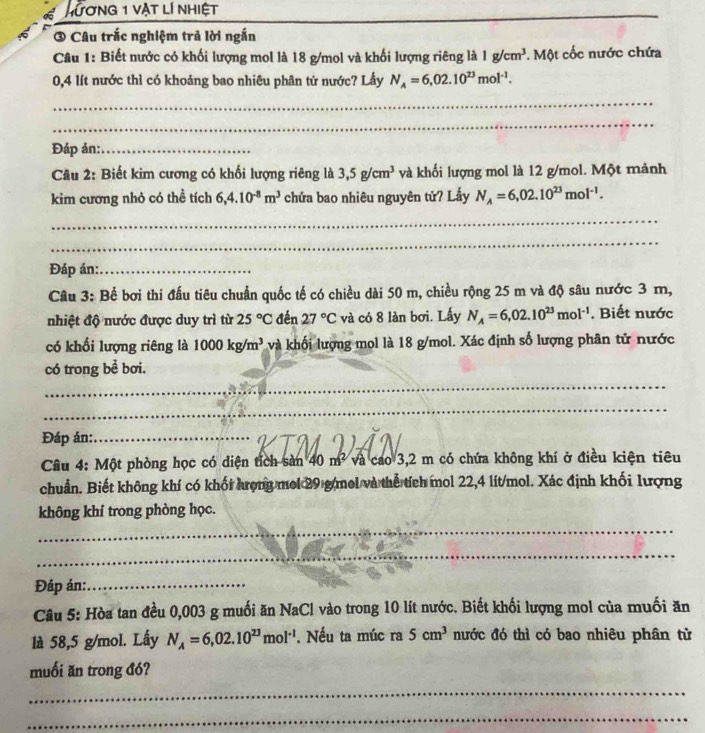 ƯƠNG 1 VẬT LÍ NHIỆT
③ Câu trắc nghiệm trả lời ngắn
Câu 1: Biết nước có khối lượng mol là 18 g/mol và khối lượng riêng là 1 g/cm³. Một cốc nước chứa
0,4 lít nước thì có khoảng bao nhiêu phân tử nước? Lấy N_A = 6,02.10²³ mol⁻¹.
Đáp án:
Câu 2: Biết kim cương có khối lượng riêng là 3,5 g/cm³ và khối lượng mol là 12 g/mol. Một mảnh
kim cương nhỏ có thể tích 6,4.10⁻⁸ m³ chứa bao nhiêu nguyên tử? Lấy N_A = 6,02.10²³ mol⁻¹.
Đáp án:
Câu 3: Bể bơi thi đấu tiêu chuẩn quốc tế có chiều dài 50 m, chiều rộng 25 m và độ sâu nước 3 m,
nhiệt độ nước được duy trì từ 25 °C đến 27 °C và có 8 làn bơi. Lấy N_A = 6,02.10²³ mol⁻¹. Biết nước
có khối lượng riêng là 1000 kg/m³ và khối lượng mol là 18 g/mol. Xác định số lượng phân tử nước
có trong bể bơi.
Đáp án:
KIM VĂN
Câu 4: Một phòng học có diện tích sàn 40 m² và cao 3,2 m có chứa không khí ở điều kiện tiêu
chuẩn. Biết không khí có khối lượng mol 29 g/mol và thể tích mol 22,4 lít/mol. Xác định khối lượng
không khí trong phòng học.
Đáp án:
Câu 5: Hòa tan đều 0,003 g muối ăn NaCl vào trong 10 lít nước. Biết khối lượng mol của muối ăn
là 58,5 g/mol. Lấy N_A = 6,02.10²³ mol⁻¹. Nếu ta múc ra 5 cm³ nước đó thì có bao nhiêu phân tử
muối ăn trong đó?